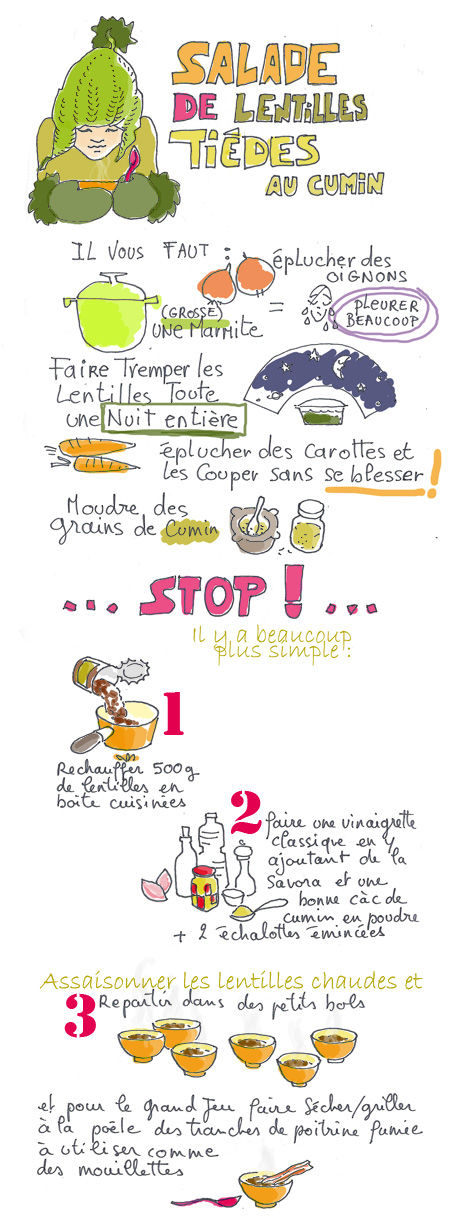 SALADE
DE LENTILLES
TIÈDES
AU CUMIN
IL VOUS FAUT :
(GROSSE)
UNE MARMITE
éPLucher des
OIGNONS
=
PLEURER
BEAUCOUP
Faire Tremper les
Lentilles Toute
une Nuit entière
éplucher des Carottes et
les Couper sans se blesser !
Moudre des
grains de Cumin
... STOP ! ...
Il y a beaucoup
plus simple :
1
Rechauffer 500g
de lentilles en
boîte cuisinées
2
faire une vinaigrette
classique en y
ajoutant de la
Savora et une
bonne càc de
cumin en poudre
+ 2 échalottes émincées
Assaisonner les lentilles chaudes et
3
Repartir dans des petits bols
et pour le grand Jeu faire sécher/griller
à la poêle des tranches de poitrine fumée
à utiliser comme
des mouillettes